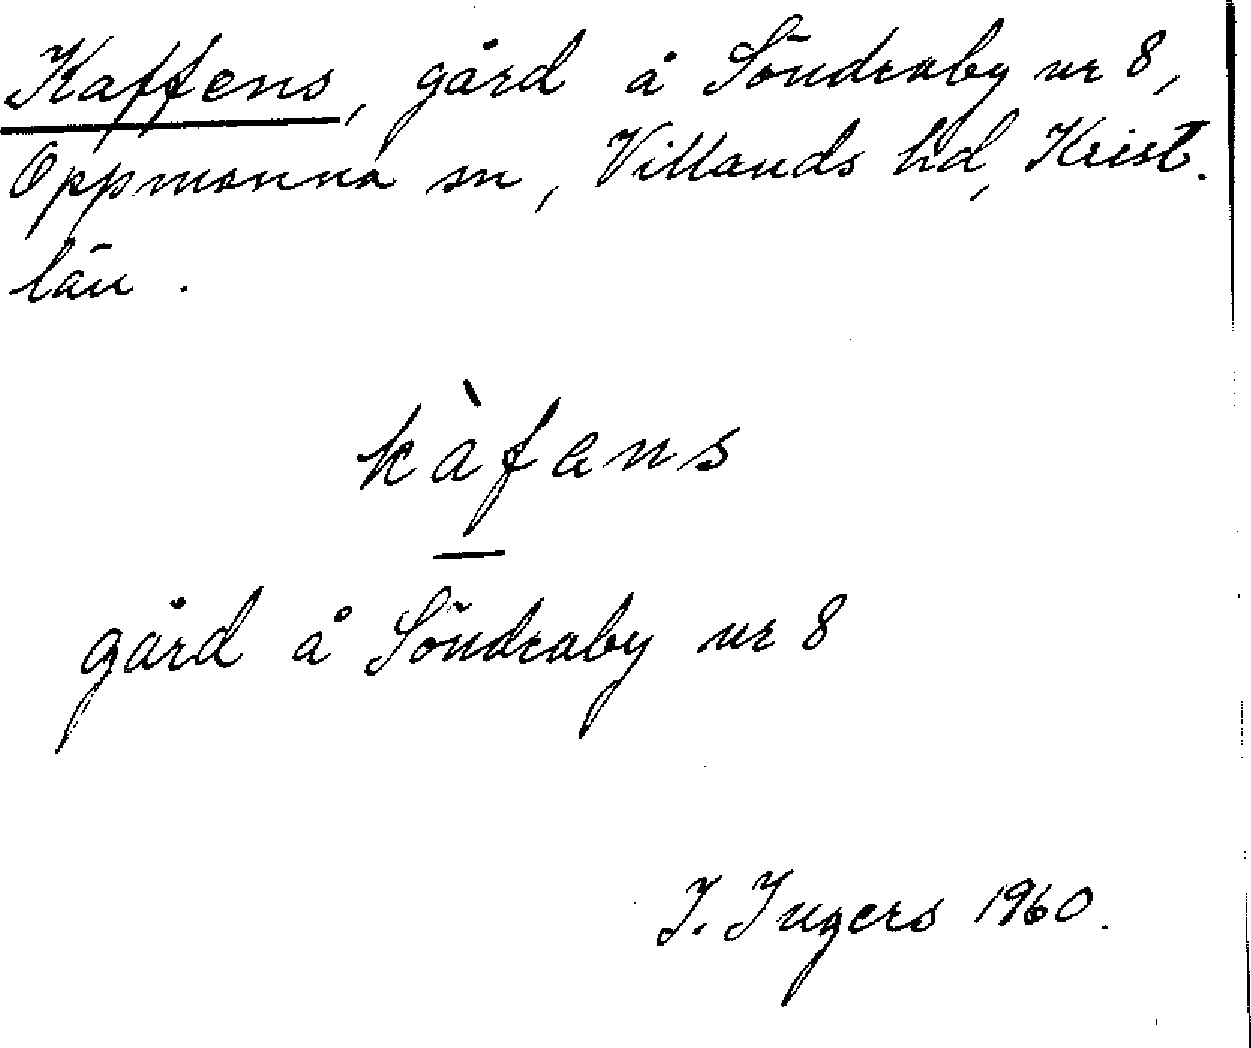 Kaffens, gård å Söndraby nr 8,
Oppmanna sn, Villands hd, Krist.
län.
kàfans
gård å Söndraby nr 8
I. Ingers 1960.